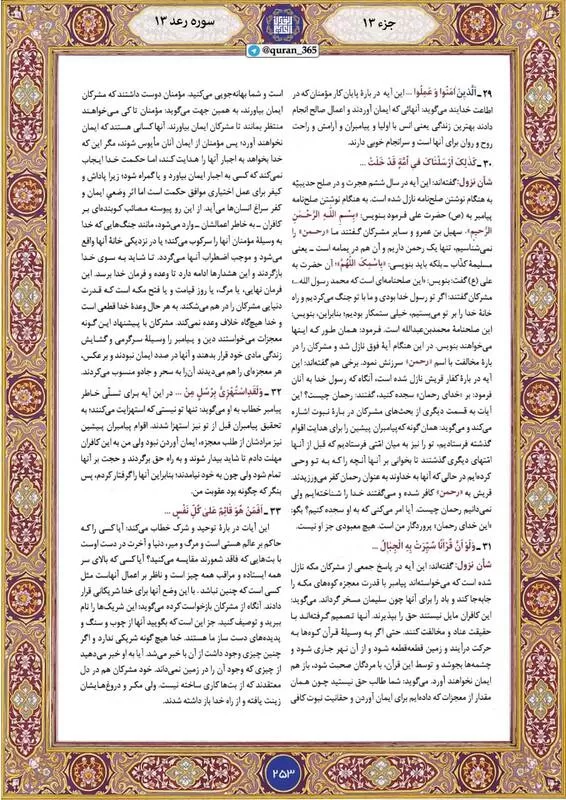 جزء ۱۳
سوره رعد ۱۳
@quran_365
۲۹ـ اَلَّذینَ امَنُوا وَ عَمِلُوا ... این آیه در بارهٔ پایان کار مؤمنان که در
اطاعت خدایند می‌گوید: آنهائی که ایمان آوردند و اعمال صالح انجام
دادند بهترین زندگی یعنی انس با اولیا و پیامبران و آرامش و راحت
روح و روان برای آنها است و سرانجام خوبی دارند.
۳۰ـ کَذٰلِکَ اَرْسَلْناکَ فی اُمَّةٍ قَدْ خَلَتْ ...
شأن نزول: گفته‌اند: این آیه در سال ششم هجرت و در صلح حدیبیّه
به هنگام نوشتن صلح‌نامه نازل شده است. به هنگام نوشتن صلح‌نامه
پیامبر به (ص) حضرت علی فرمود بنویس: «بِسْمِ اللّهِ الرَّحْمٰنِ
الرَّحیمِ» سهیل بن عمرو و سایر مشرکان گفتند ما «رحمن» را
نمی‌شناسیم، تنها یک رحمن داریم و آن هم در یمامه است ـ یعنی
مسلیمهٔ کذّاب ـ بلکه باید بنویسی: «بِاسْمِکَ اللّهُمَّ» آن حضرت به
علی (ع) گفت: بنویس: «این صلحنامه‌ای است که محمد رسول الله...»
مشرکان گفتند: اگر تو رسول خدا بودی و ما با تو جنگ می‌کردیم و راه
خانهٔ خدا را بر تو می‌بستیم، خیلی ستمکار بودیم؛ بنابراین، بنویس:
این صلحنامهٔ محمدبن‌عبدالله است. فرمود: همان طور که اینها
می‌خواهند بنویس. در این هنگام آیهٔ فوق نازل شد و مشرکان را در
بارهٔ مخالفت با اسم «رحمن» سرزنش نمود. برخی هم گفته‌اند: این
آیه در بارهٔ کفار قریش نازل شده است، آنگاه که رسول خدا به آنان
فرمود: بر «خدای رحمان» سجده کنید، گفتند: رحمان چیست؟ این
آیات به قسمت دیگری از بحث‌های مشرکان در بارهٔ نبوت اشاره
می‌کند و می‌گوید: همان گونه که پیامبران پیشین را برای هدایت اقوام
گذشته فرستادیم، تو را نیز به میان امّتی فرستادیم که قبل از آنها
امّتهای دیگری گذشتند تا بخوانی بر آنها آنچه را که به تو وحی
کرده‌ایم در حالی که آنها به خداوند به عنوان رحمان کفر می‌ورزیدند.
قریش به «رحمن» کافر شده و می‌گفتند خدا را شناخته‌ایم ولی
نمی‌دانیم رحمان چیست. آیا امر می‌کنی که به او سجده کنیم؟ بگو:
«این خدای رحمان» پروردگار من است. هیچ معبودی جز او نیست.
۳۱ـ وَلَوْ اَنَّ قُرْاٰنًا سُیِّرَتْ بِهِ الْجِبالُ ...
شأن نزول: گفته‌اند: این آیه در پاسخ جمعی از مشرکان مکه نازل
شده است که می‌خواسته‌اند پیامبر با قدرت معجزه کوه‌های مکه را
جابه‌جا کند و باد را برای آنها چون سلیمان مسخر گرداند. می‌گوید:
این کافران مایل نیستند حق را بپذیرند. آنها تصمیم گرفته‌اند با
حقیقت عناد و مخالفت کنند. حتی اگر به وسیلهٔ قرآن کوه‌ها به
حرکت درآیند و زمین قطعه‌قطعه شود و از آن نهر جاری شود و
چشمه‌ها بجوشد و توسط این قرآن، با مردگان صحبت شود، باز هم
ایمان نخواهند آورد. می‌گوید: شما طالب حق نیستید چون همان
مقدار از معجزات که داده‌ایم برای ایمان آوردن و حقانیت نبوت کافی
است و شما بهانه‌جویی می‌کنید. مؤمنان دوست داشتند که مشرکان
ایمان بیاورند، به همین جهت می‌گوید: مؤمنان تا کی می‌خواهند
منتظر بمانند تا مشرکان ایمان بیاورند. آنها کسانی هستند که ایمان
نخواهند آورد؛ پس مؤمنان از ایمان آنان مأیوس شوند، مگر این که
خدا بخواهد به اجبار آنها را هدایت کند، اما حکمت خدا ایجاب
نمی‌کند که کسی به اجبار ایمان بیاورد و یا گمراه شود؛ زیرا پاداش و
کیفر برای عمل اختیاری موافق حکمت است اما اثر وضعیِ ایمان و
کفر سراغ انسان‌ها می‌آید. از این رو پیوسته مصائب کوبنده‌ای بر
کافران ـ به خاطر اعمالشان ـ وارد می‌شود، مانند جنگ‌هایی که خدا
به وسیلهٔ مؤمنان آنها را سرکوب می‌کند؛ یا در نزدیکی خانهٔ آنها واقع
می‌شود و موجب اضطراب آنها می‌گردد. تا شاید به سوی خدا
بازگردند و این هشدارها ادامه دارد تا وعده و فرمان خدا برسد. این
فرمان نهایی، یا مرگ، یا روز قیامت و یا فتح مکه است که قدرت
دنیایی مشرکان را در هم می‌شکند. به هر حال وعدهٔ خدا قطعی است
و خدا هیچ‌گاه خلاف وعده نمی‌کند. مشرکان با پیشنهاد این گونه
معجزات می‌خواستند دین و پیامبر را وسیلهٔ سرگرمی و گشایش
زندگی مادی خود قرار بدهند و آنها در صدد ایمان نبودند و بر عکس،
هر معجزه‌ای را هم می‌دیدند آن را به سحر و جادو منسوب می‌کردند.
۳۲ـ وَلَقَدِاسْتُهْزِئَ بِرُسُلٍ مِنْ ... در این آیه برای تسلّی خاطر
پیامبر خطاب به او می‌گوید: تنها تو نیستی که استهزایت می‌کنند؛ به
تحقیق پیامبران قبل از تو نیز استهزا شدند. اقوام پیامبران پیشین
نیز مرادشان از طلب معجزه، ایمان آوردن نبود ولی من به این کافران
مهلت دادم تا شاید بیدار شوند و به راه حق برگردند و حجت بر آنها
تمام شود ولی چون به خود نیامدند؛ بنابراین آنها را گرفتار کردم، پس
بنگر که چگونه بود عقوبت من.
۳۳ـ اَفَمَنْ هُوَ قائِمٌ عَلی کُلِّ نَفْسٍ ...
این آیات در بارهٔ توحید و شرک خطاب می‌کند: آیا کسی را که
حاکم بر عالم هستی است و مرگ و میر، دنیا و آخرت در دست اوست
با بت‌هایی که فاقد شعورند مقایسه می‌کنید؟ آیا کسی که بالای سر
همه ایستاده و مراقب همه چیز است و ناظر بر اعمال آنهاست مثل
کسی است که چنین نباشد. با این وضع آنها برای خدا شریکانی قرار
دادند. آنگاه از مشرکان بازخواست کرده می‌گوید: این شریک‌ها را نام
ببرید و توصیف کنید. جز این است که بگویید آنها از چوب و سنگ و
پدیده‌های دست ساز ما هستند. خدا هیچ گونه شریکی ندارد و اگر
چنین چیزی وجود داشت از آن با خبر می‌شد. آیا به او خبر می‌دهید
از چیزی که وجود آن را در زمین نمی‌داند. خود مشرکان هم در دل
معتقدند که از بت‌ها کاری ساخته نیست. ولی مکر و دروغ‌هایشان
زینت یافته و از راه خدا باز داشته شدند.
۲۵۳